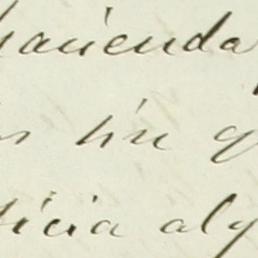 hacienda
sin q
ticia alg